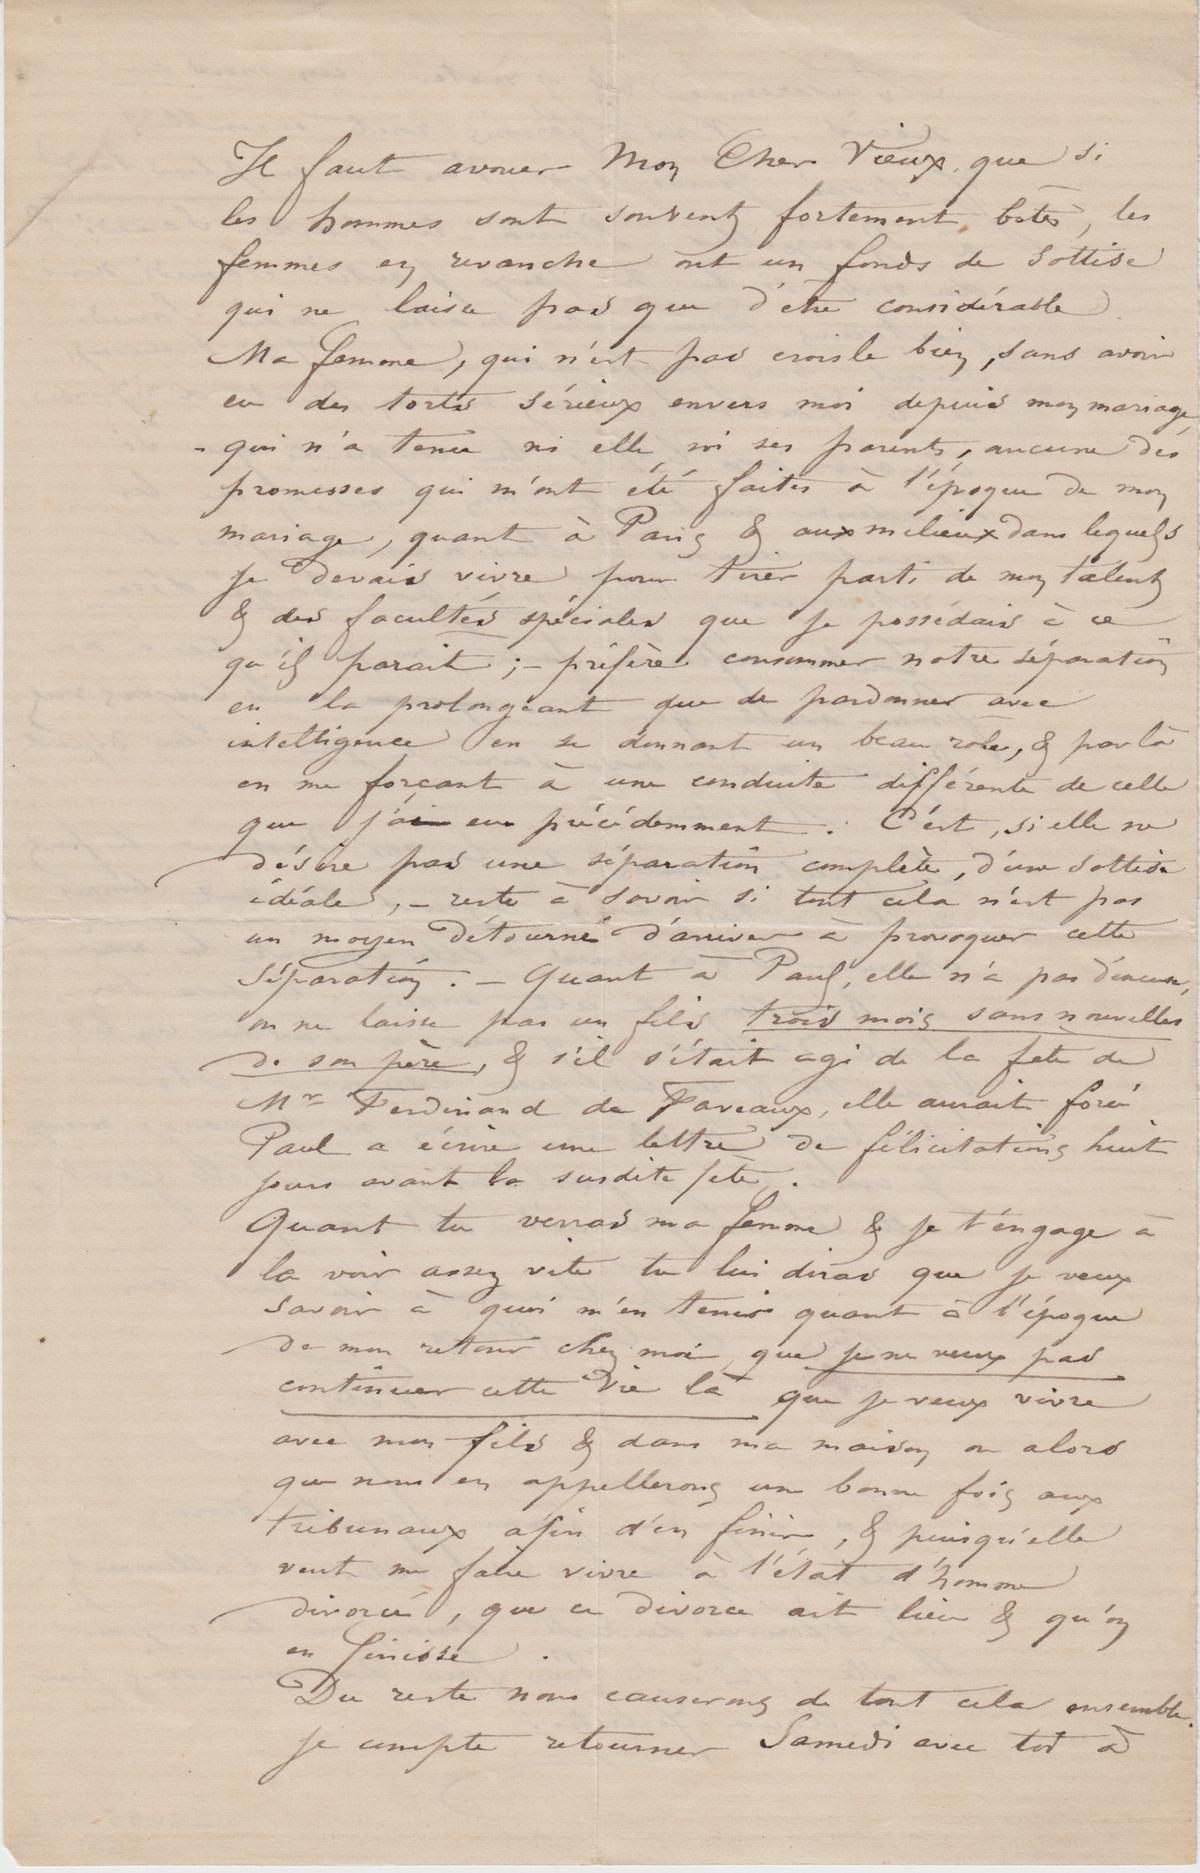 Il faut avouer Mon Cher Vieux, que si
les hommes sont souvent fortement bêtes, les
femmes en revanche ont un fonds de sottise
qui ne laisse pas que d'être considérable.
Ma femme, qui n'est pas crois le bien, sans avoir
eu des torts sérieux envers moi depuis mon mariage,
- qui n'a tenu ni elle, ni ses parents, aucune des
promesses qui m'ont été faites à l'époque de mon
mariage, quant à Paris & aux milieux dans lequels
je devais vivre pour tirer parti de mon talent
& des facultés spéciales que je possédais à ce
qu'il parait ;- préfère consommer notre séparation
en la prolongeant que de pardonner avec
intelligence en se donnant un beau role, & par là
en me forçant à une conduite différente de celle
que j'ai eue précédemment. C'est, si elle ne
désire pas une séparation complète, d'une sottise
idéale, - reste à savoir si tout cela n'est pas
un moyen détourné d'arriver à provoquer cette
séparation. - Quant à Paul, elle n'a pas d'excuse,
on ne laisse pas un fils trois mois sans nouvelles
de son père, & s'il s'était agi de la fete de
Mr Ferdinand de Faveaux, elle aurait forcé
Paul a écrire une lettre de félicitations huit
jours avant la susdite fête.
Quant tu verras ma femme & je t'engage à
la voir assez vite tu lui diras que je veux
savoir à quoi m'en tenir quant à l'époque
de mon retour chez moi, que je ne veux pas
continuer cette vie là que je veux vivre
avec mon fils & dans ma maison ou alors
que nous en appellerons une bonne fois aux
tribunaux afin d'en finir, & puisqu'elle
veut me faire vivre à l'état d'homme
divorcé, que ce divorce ait lieu & qu'on
en finisse.
Du reste nous causerons de tout cela ensemble.
Je compte retourner Samedi avec toi à